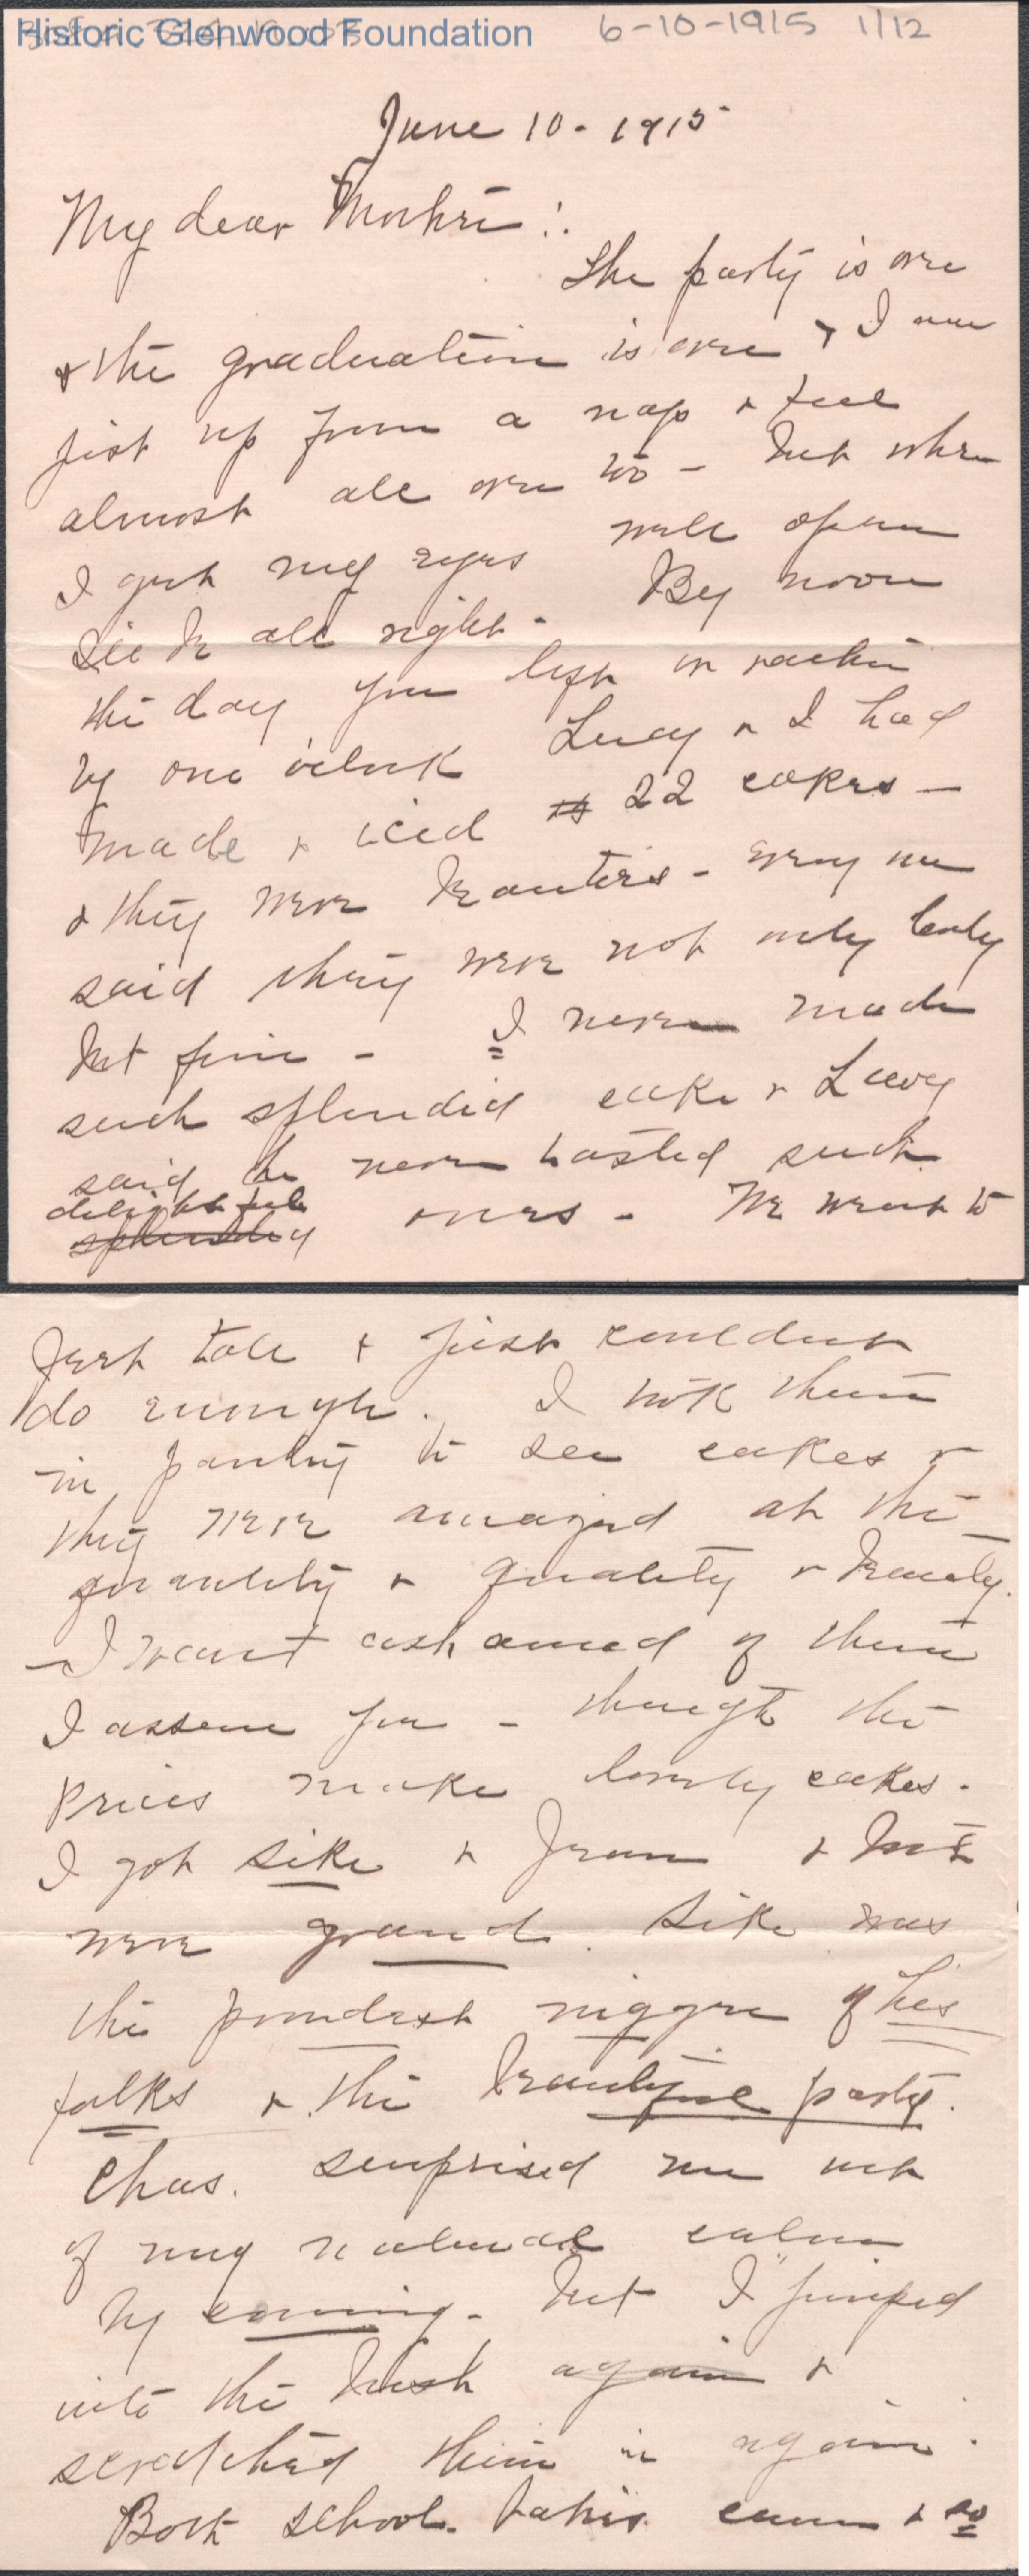 Historic Glenwood Foundation 6-10-1915 1/12
June 10 - 1915
My dear Mother :.
The party is over
& the graduation is over & I am
just up from a nap & feel
almost all over too - but when
I get my eyes well open
I'll be all right. By noon
the day you left or rather
by one o'clock Lucy & I had
made & iced 22 cakes -
& they were beauties - every one
said they were not only lovely
but fine - I never made
such splendid cake & Lucy
said he never tasted such
delightful ones - We went to
just &
do enough. I took them
in pantry to see cakes &
they were amazed at the
quantity & quality & beauty.
I wasn't ashamed of them
I assure you - though the
Prices make lovely cakes.
I got Sike & &
were grand. Sike was
the proudest nigger of his
folks & the beautiful party.
Chas. surprised me out
of my natural calm
by coming - but I "jumped
into the bush again &
scratched them in again.
Both school came & so